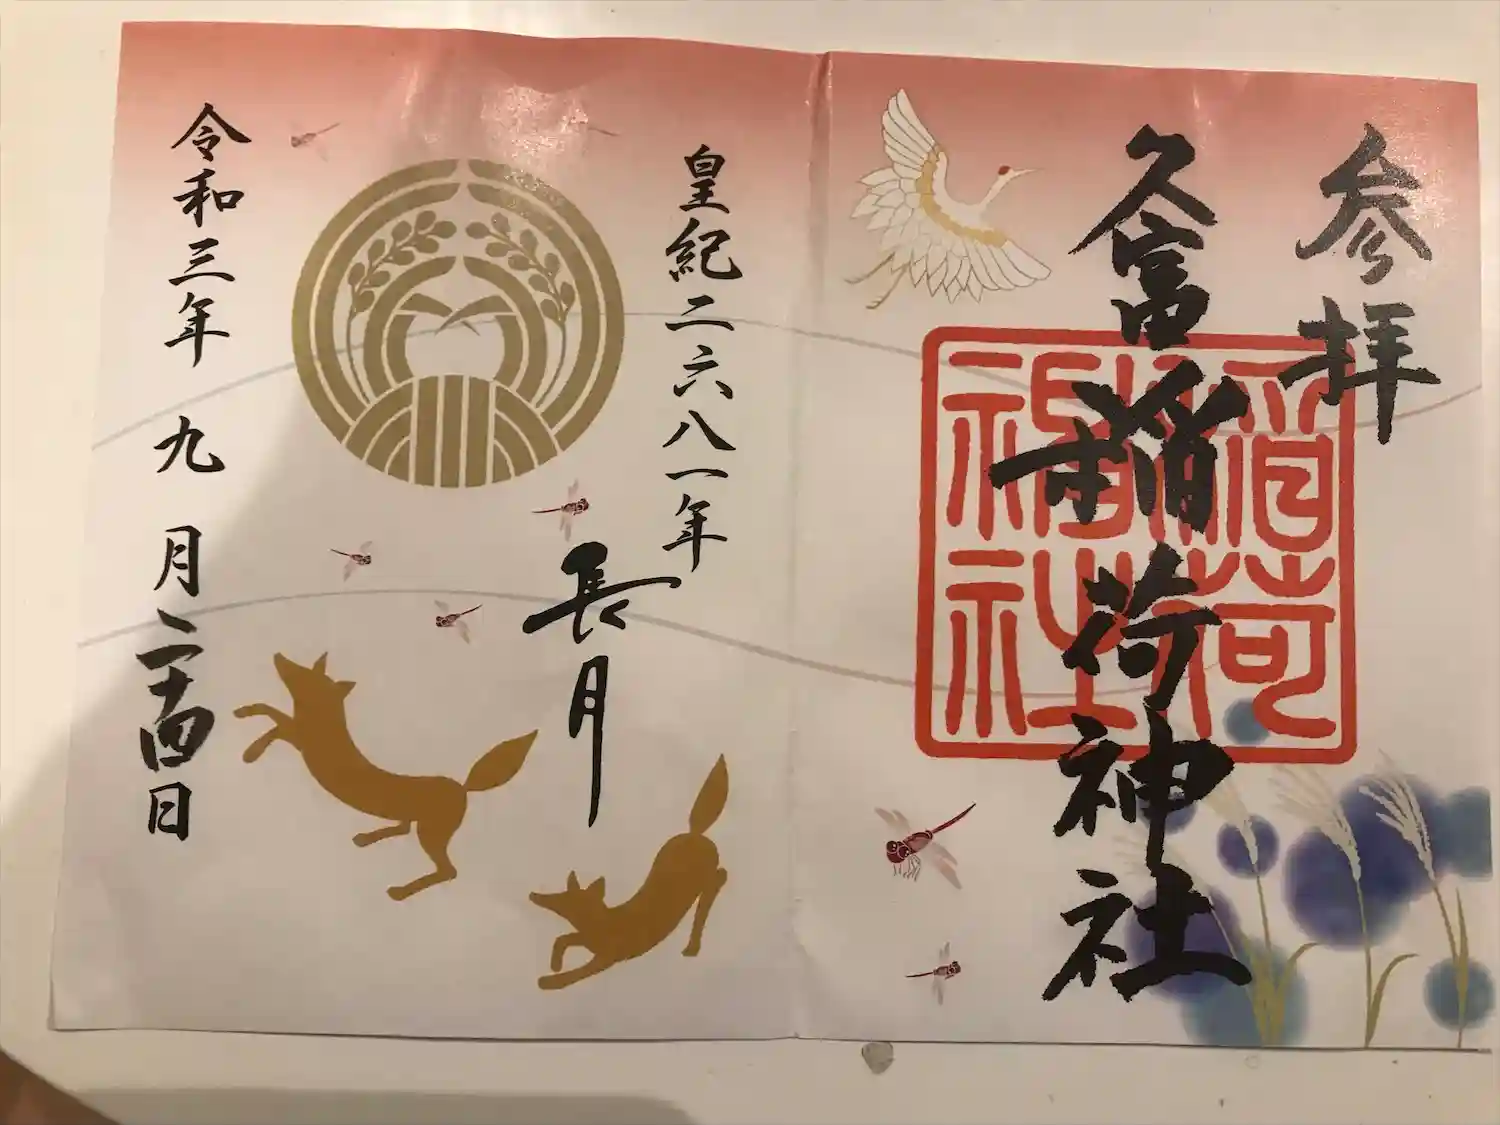 参拝
久富稲荷神社
稲荷
神社
皇紀二六八一年
長月
令和三年 九 月二十四日